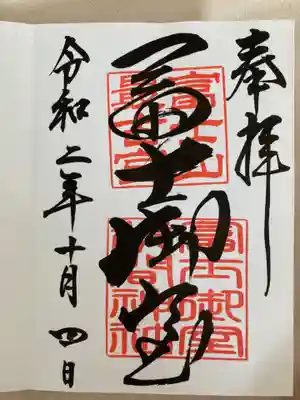 奉拝
冨士御室
富士山
最古宮
冨士御室
浅間神社
令和二年十月四日